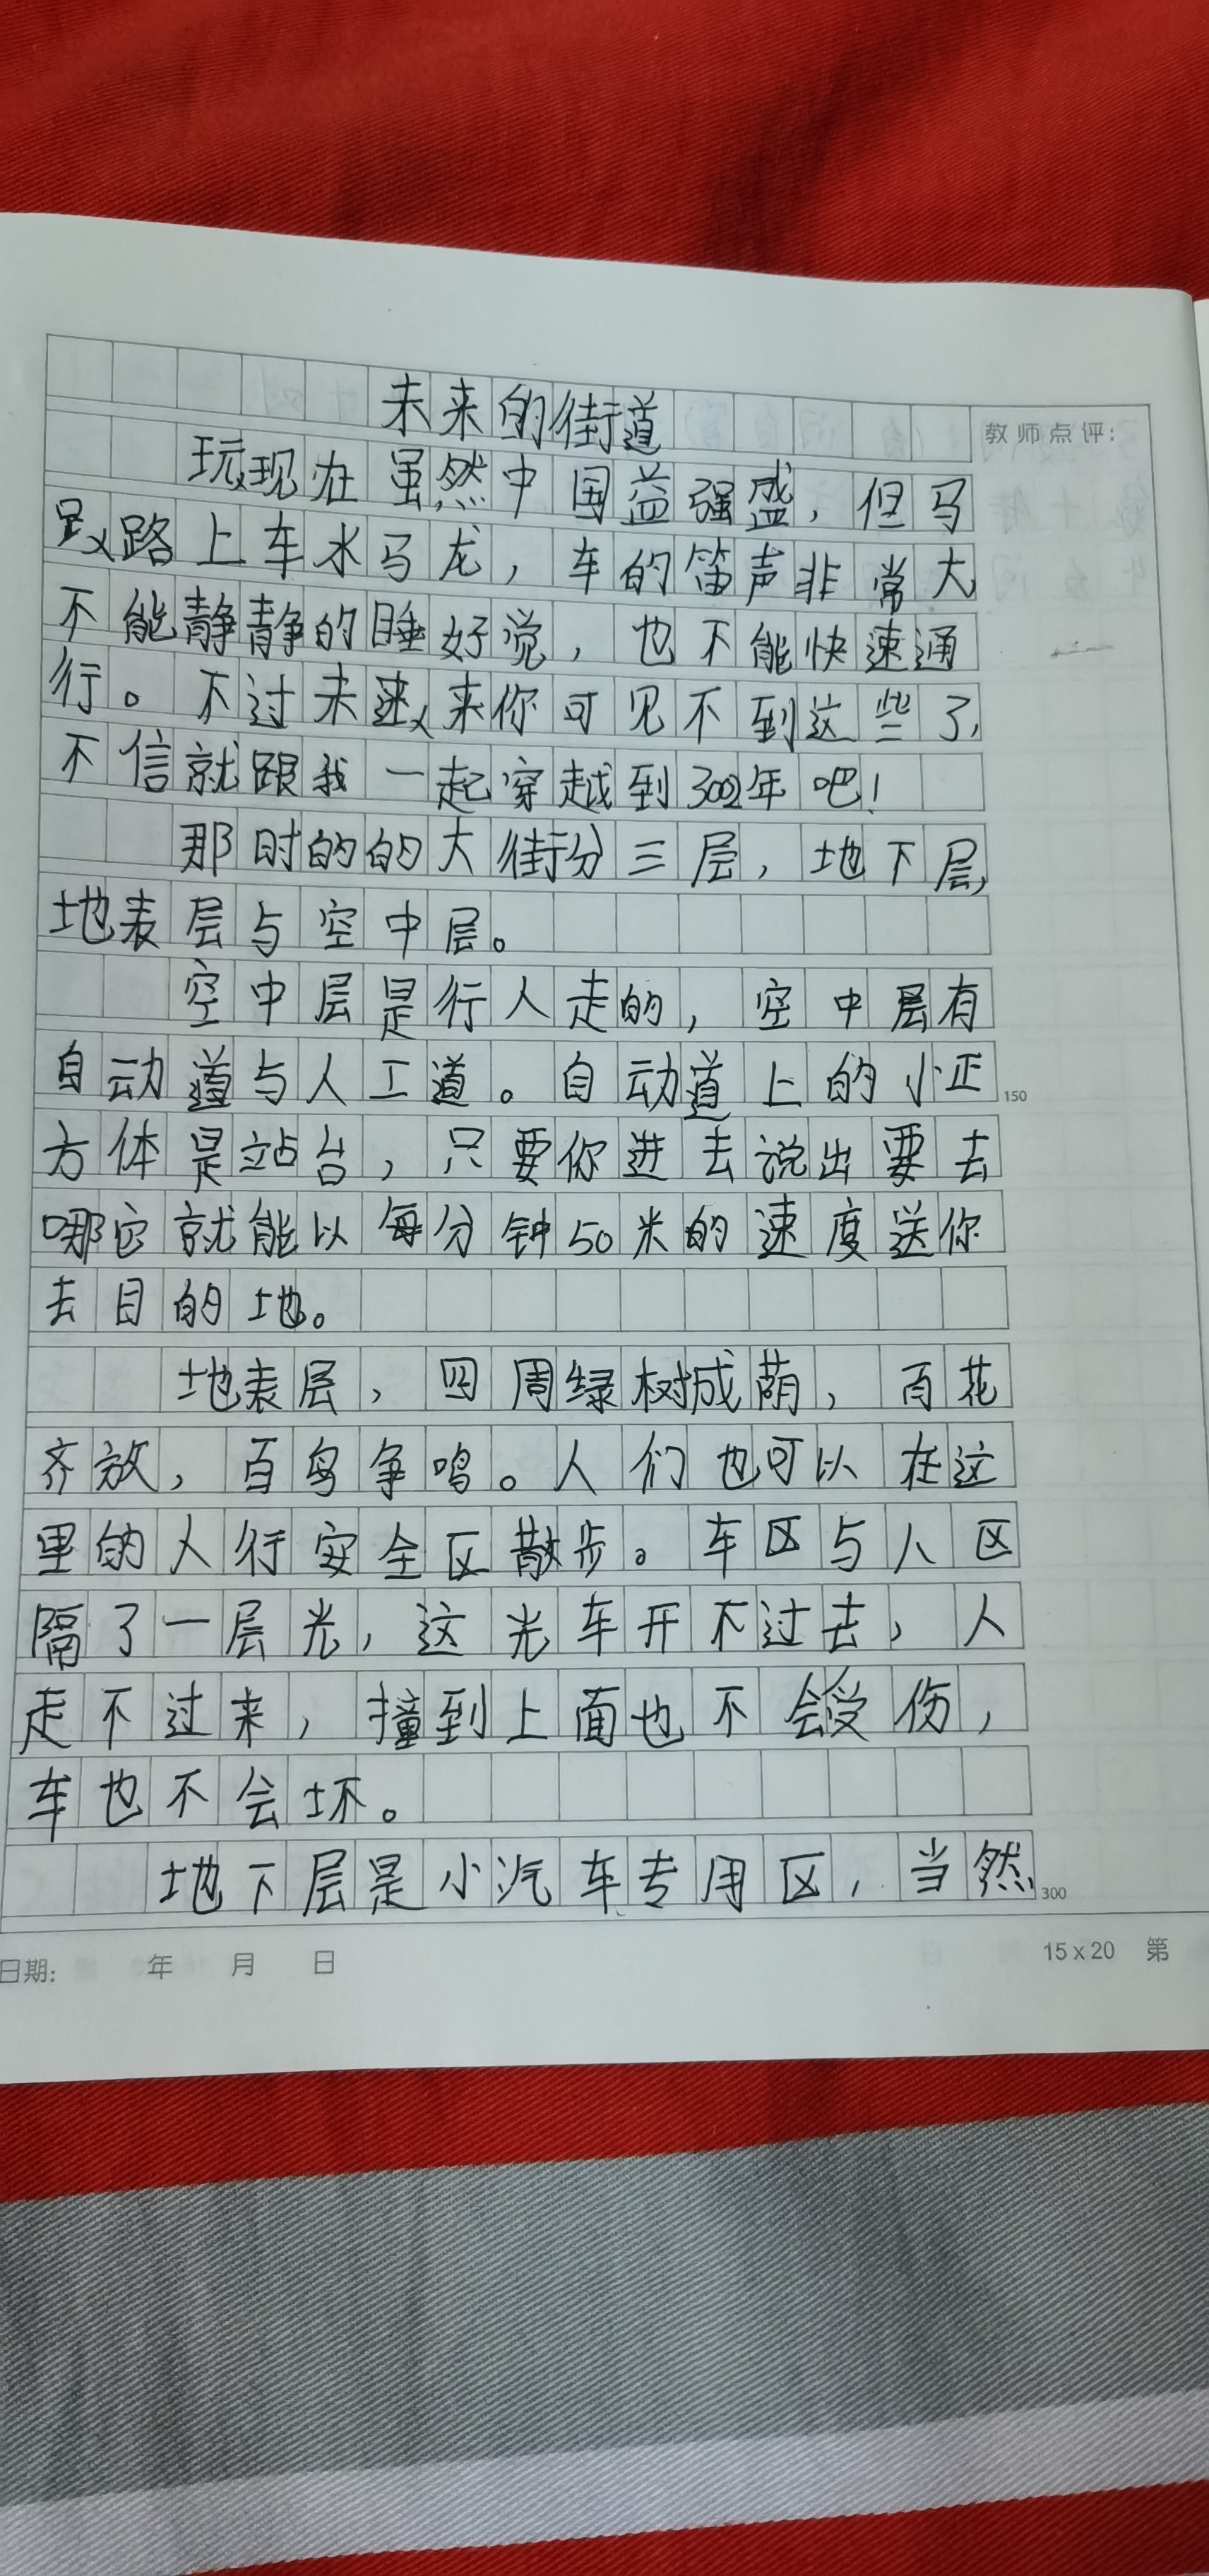 未来的街道
教师点评:
现在虽然中国益强盛，但马
路上车水马龙，车的笛声非常大
不能静静的睡好觉，也不能快速通
行。不过未来你可见不到这些了，
不信就跟我一起穿越到3002年吧！
那时的的大街分三层，地下层，
地表层与空中层。
空中层是行人走的，空中层有
自动道与人工道。自动道上的小正
150
方体是站台，只要你进去说出要去
哪它就能以每分钟50米的速度送你
去目的地。
地表层，四周绿树成荫，百花
齐放，百鸟争鸣。人们也可以在这
里的人行安全区散步。车区与人区
隔了一层光，这光车开不过去，人
走不过来，撞到上面也不会受伤，
车也不会坏。
地下层是小汽车专用区，当然
300
日期: 年 月 日 15x20 第